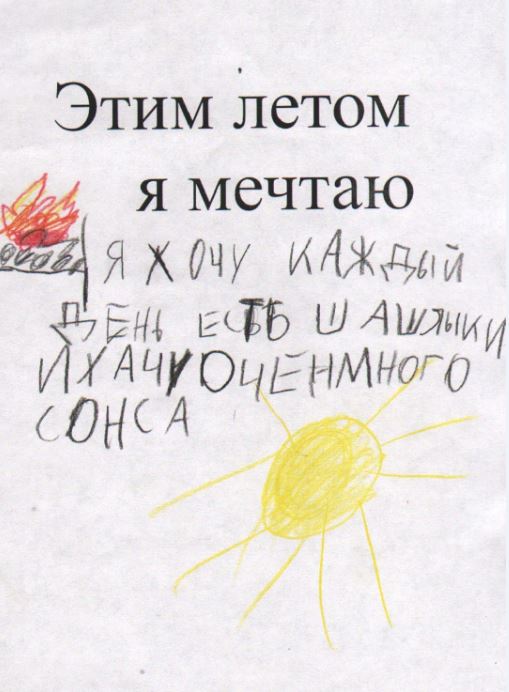 Этим летом
я мечтаю
Я ХОЧУ КАЖДЫЙ
ДЕНЬ ЕСТЬ ШАШЛЫКИ
И ХАЧУ ОЧЕНМНОГО
СОНСА